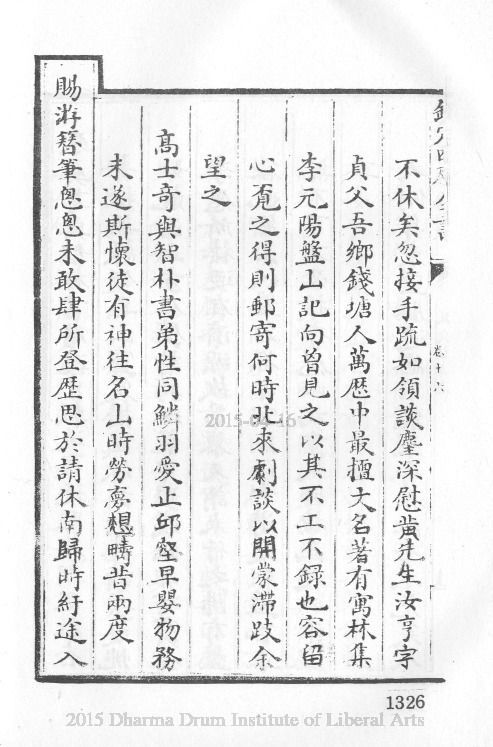 欽定四庫全書
卷十六
不休矣忽接手疏如領談麈深慰黄先生汝亨字
貞父吾鄉錢塘人萬歷中最擅大名著有寓林集
李元陽盤山記向曽見之以其不工不錄也容留
心覔之得則郵寄何時北來劇談以開蒙滯跂余
望之
髙士竒與智朴書弟性同鱗羽愛止邱壑早嬰物務
未遂斯懷徒有神往名山時勞夢想疇昔兩度
賜游簮筆悤悤未敢肆所登歴思於請休南歸時紆途入
1326
2015-04-16
2015 Dharma Drum Institute of Liberal Arts